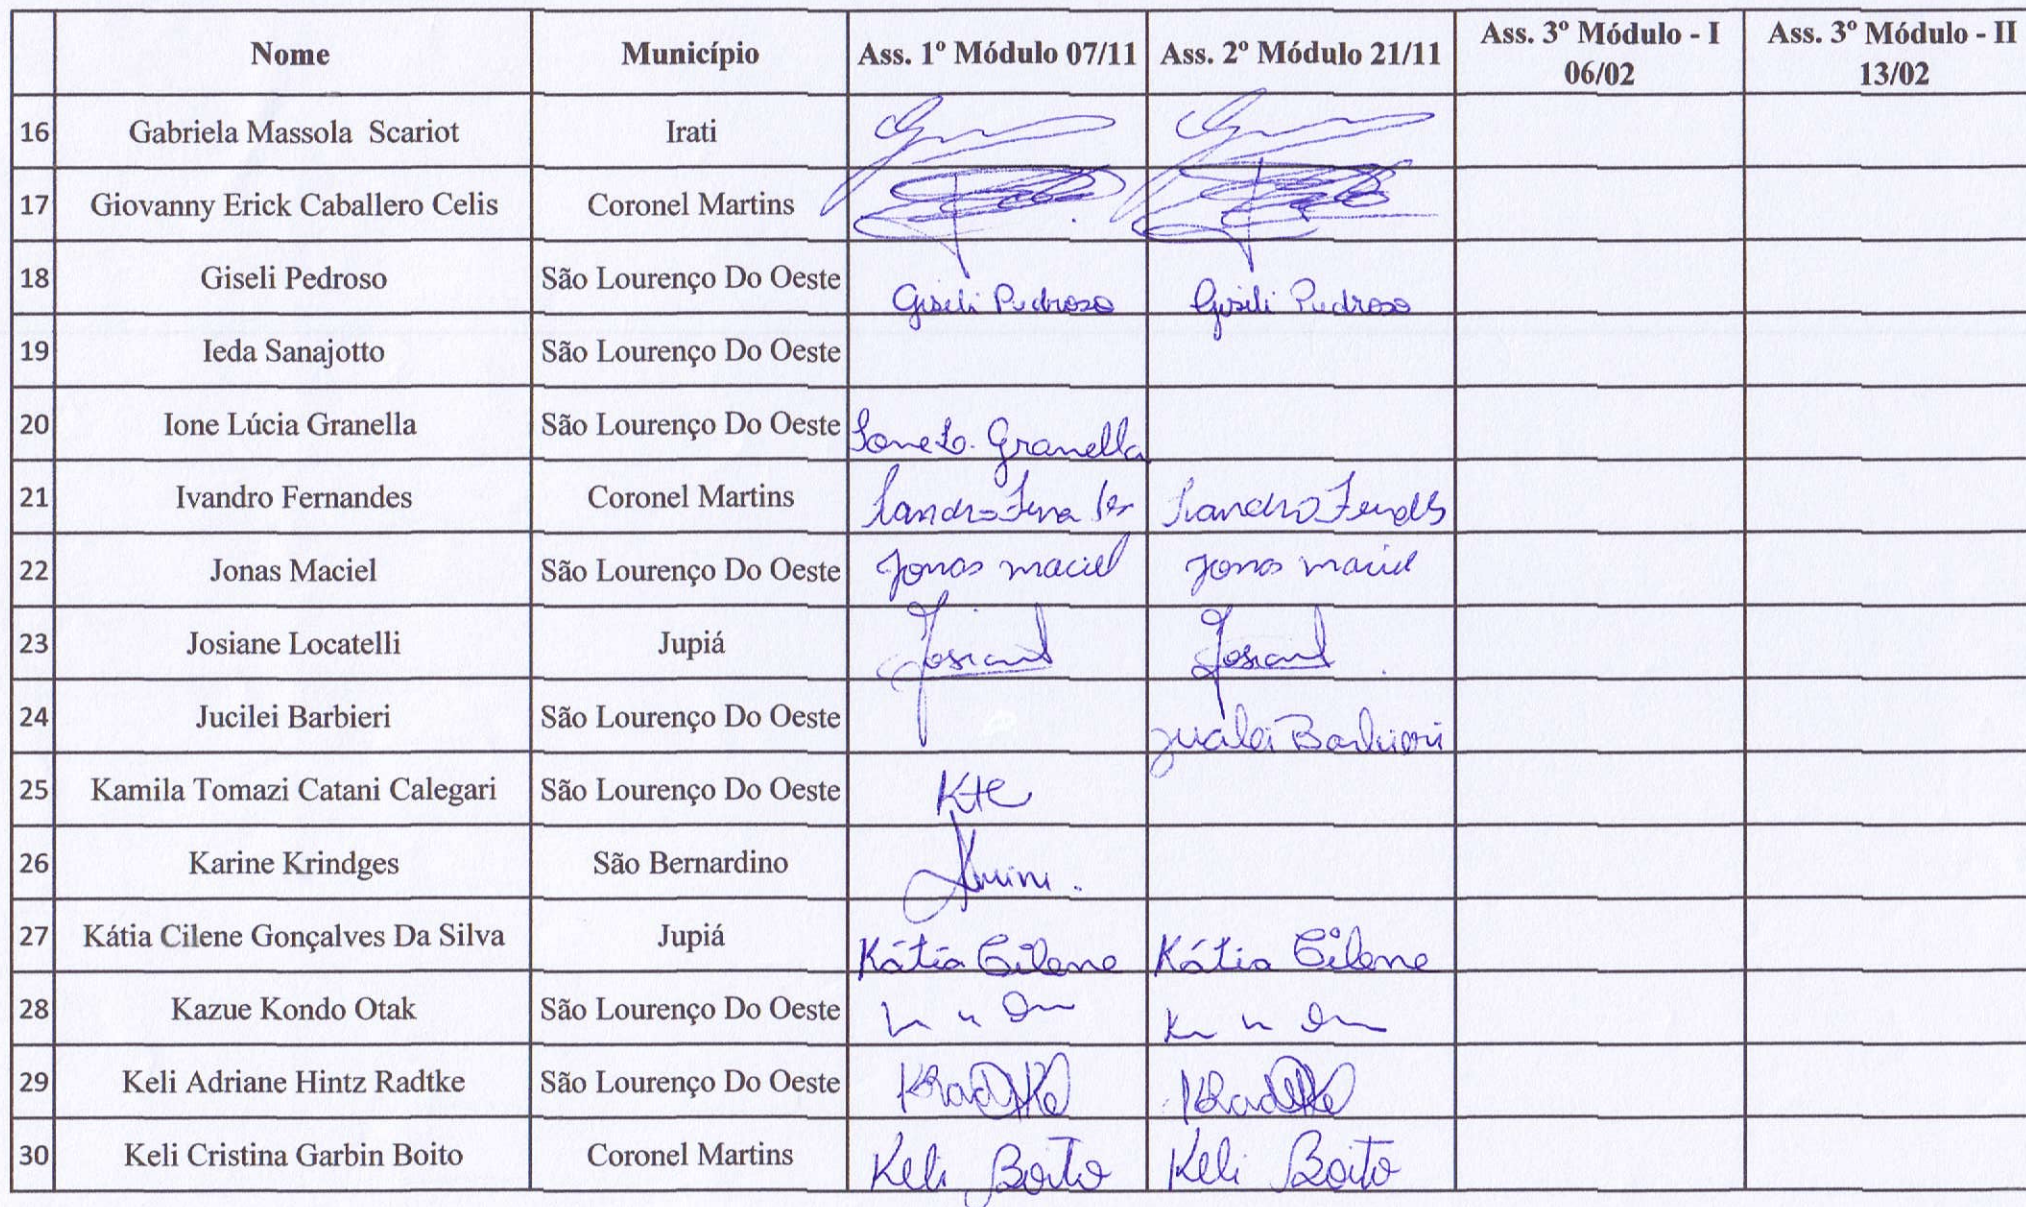 Nome Município Ass. 1º Módulo 07/11 Ass. 2º Módulo 21/11 Ass. 3º Módulo - I 06/02 Ass. 3º Módulo - II 13/02
16 Gabriela Massola Scariot Irati
17 Giovanny Erick Caballero Celis Coronel Martins
18 Giseli Pedroso São Lourenço Do Oeste Giseli Pedroso Giseli Pedroso
19 Ieda Sanajotto São Lourenço Do Oeste
20 Ione Lúcia Granella São Lourenço Do Oeste Ione L. Granella
21 Ivandro Fernandes Coronel Martins
22 Jonas Maciel São Lourenço Do Oeste Jonas maciel Jonas maciel
23 Josiane Locatelli Jupiá
24 Jucilei Barbieri São Lourenço Do Oeste Jucilei Barbieri
25 Kamila Tomazi Catani Calegari São Lourenço Do Oeste
26 Karine Krindges São Bernardino
27 Kátia Cilene Gonçalves Da Silva Jupiá Kátia Cilene Kátia Cilene
28 Kazue Kondo Otak São Lourenço Do Oeste
29 Keli Adriane Hintz Radtke São Lourenço Do Oeste KRadtke KRadtke
30 Keli Cristina Garbin Boito Coronel Martins Keli Boito Keli Boito